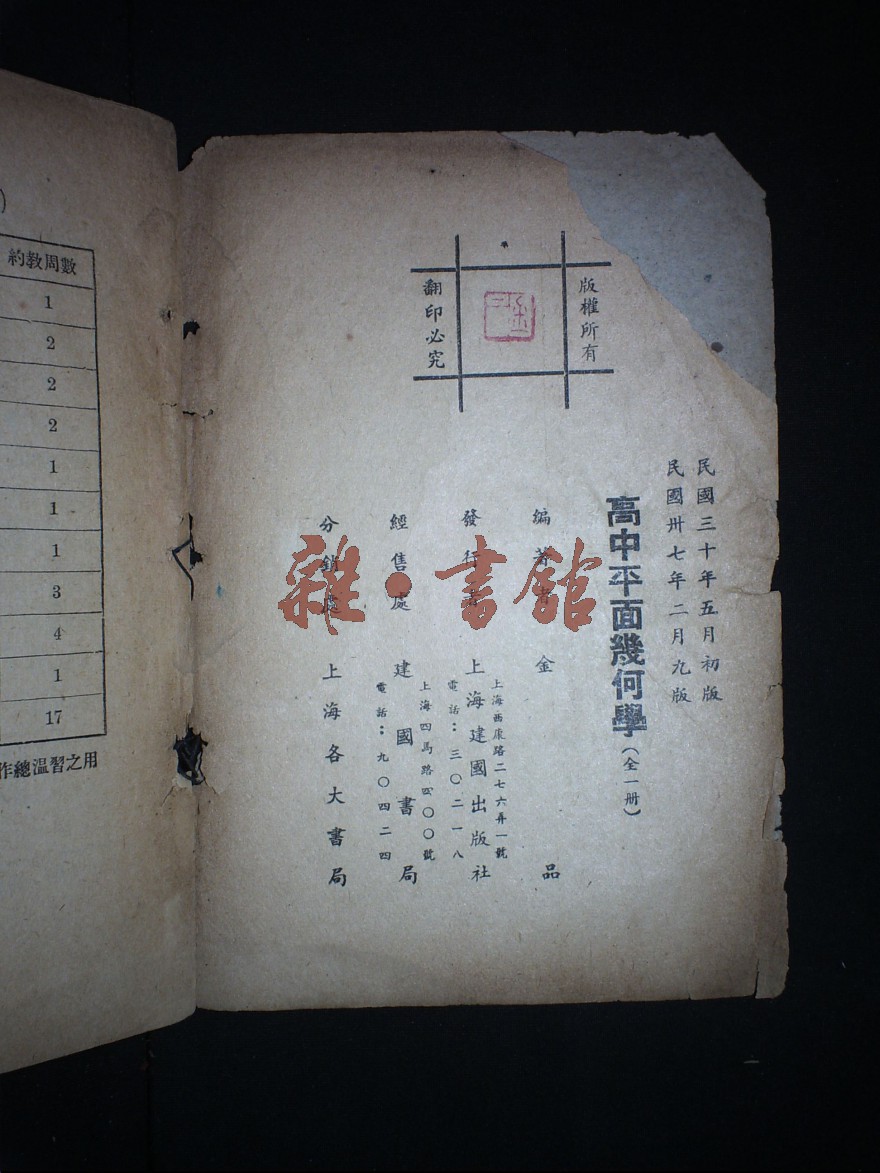 民國三十年五月初版
民國卅七年二月九版
高中平面幾何學(全一册)
版權所有
翻印必究
編著者 金品
發行者 上海建國出版社
上海西康路二七六弄一號
電話：三〇二一八
經售處 建國書局
上海四馬路四〇〇號
電話：九〇四二四
分銷處 上海各大書局
雜·書館
約教周數
1
2
2
2
1
1
1
3
4
1
17
作總温習之用